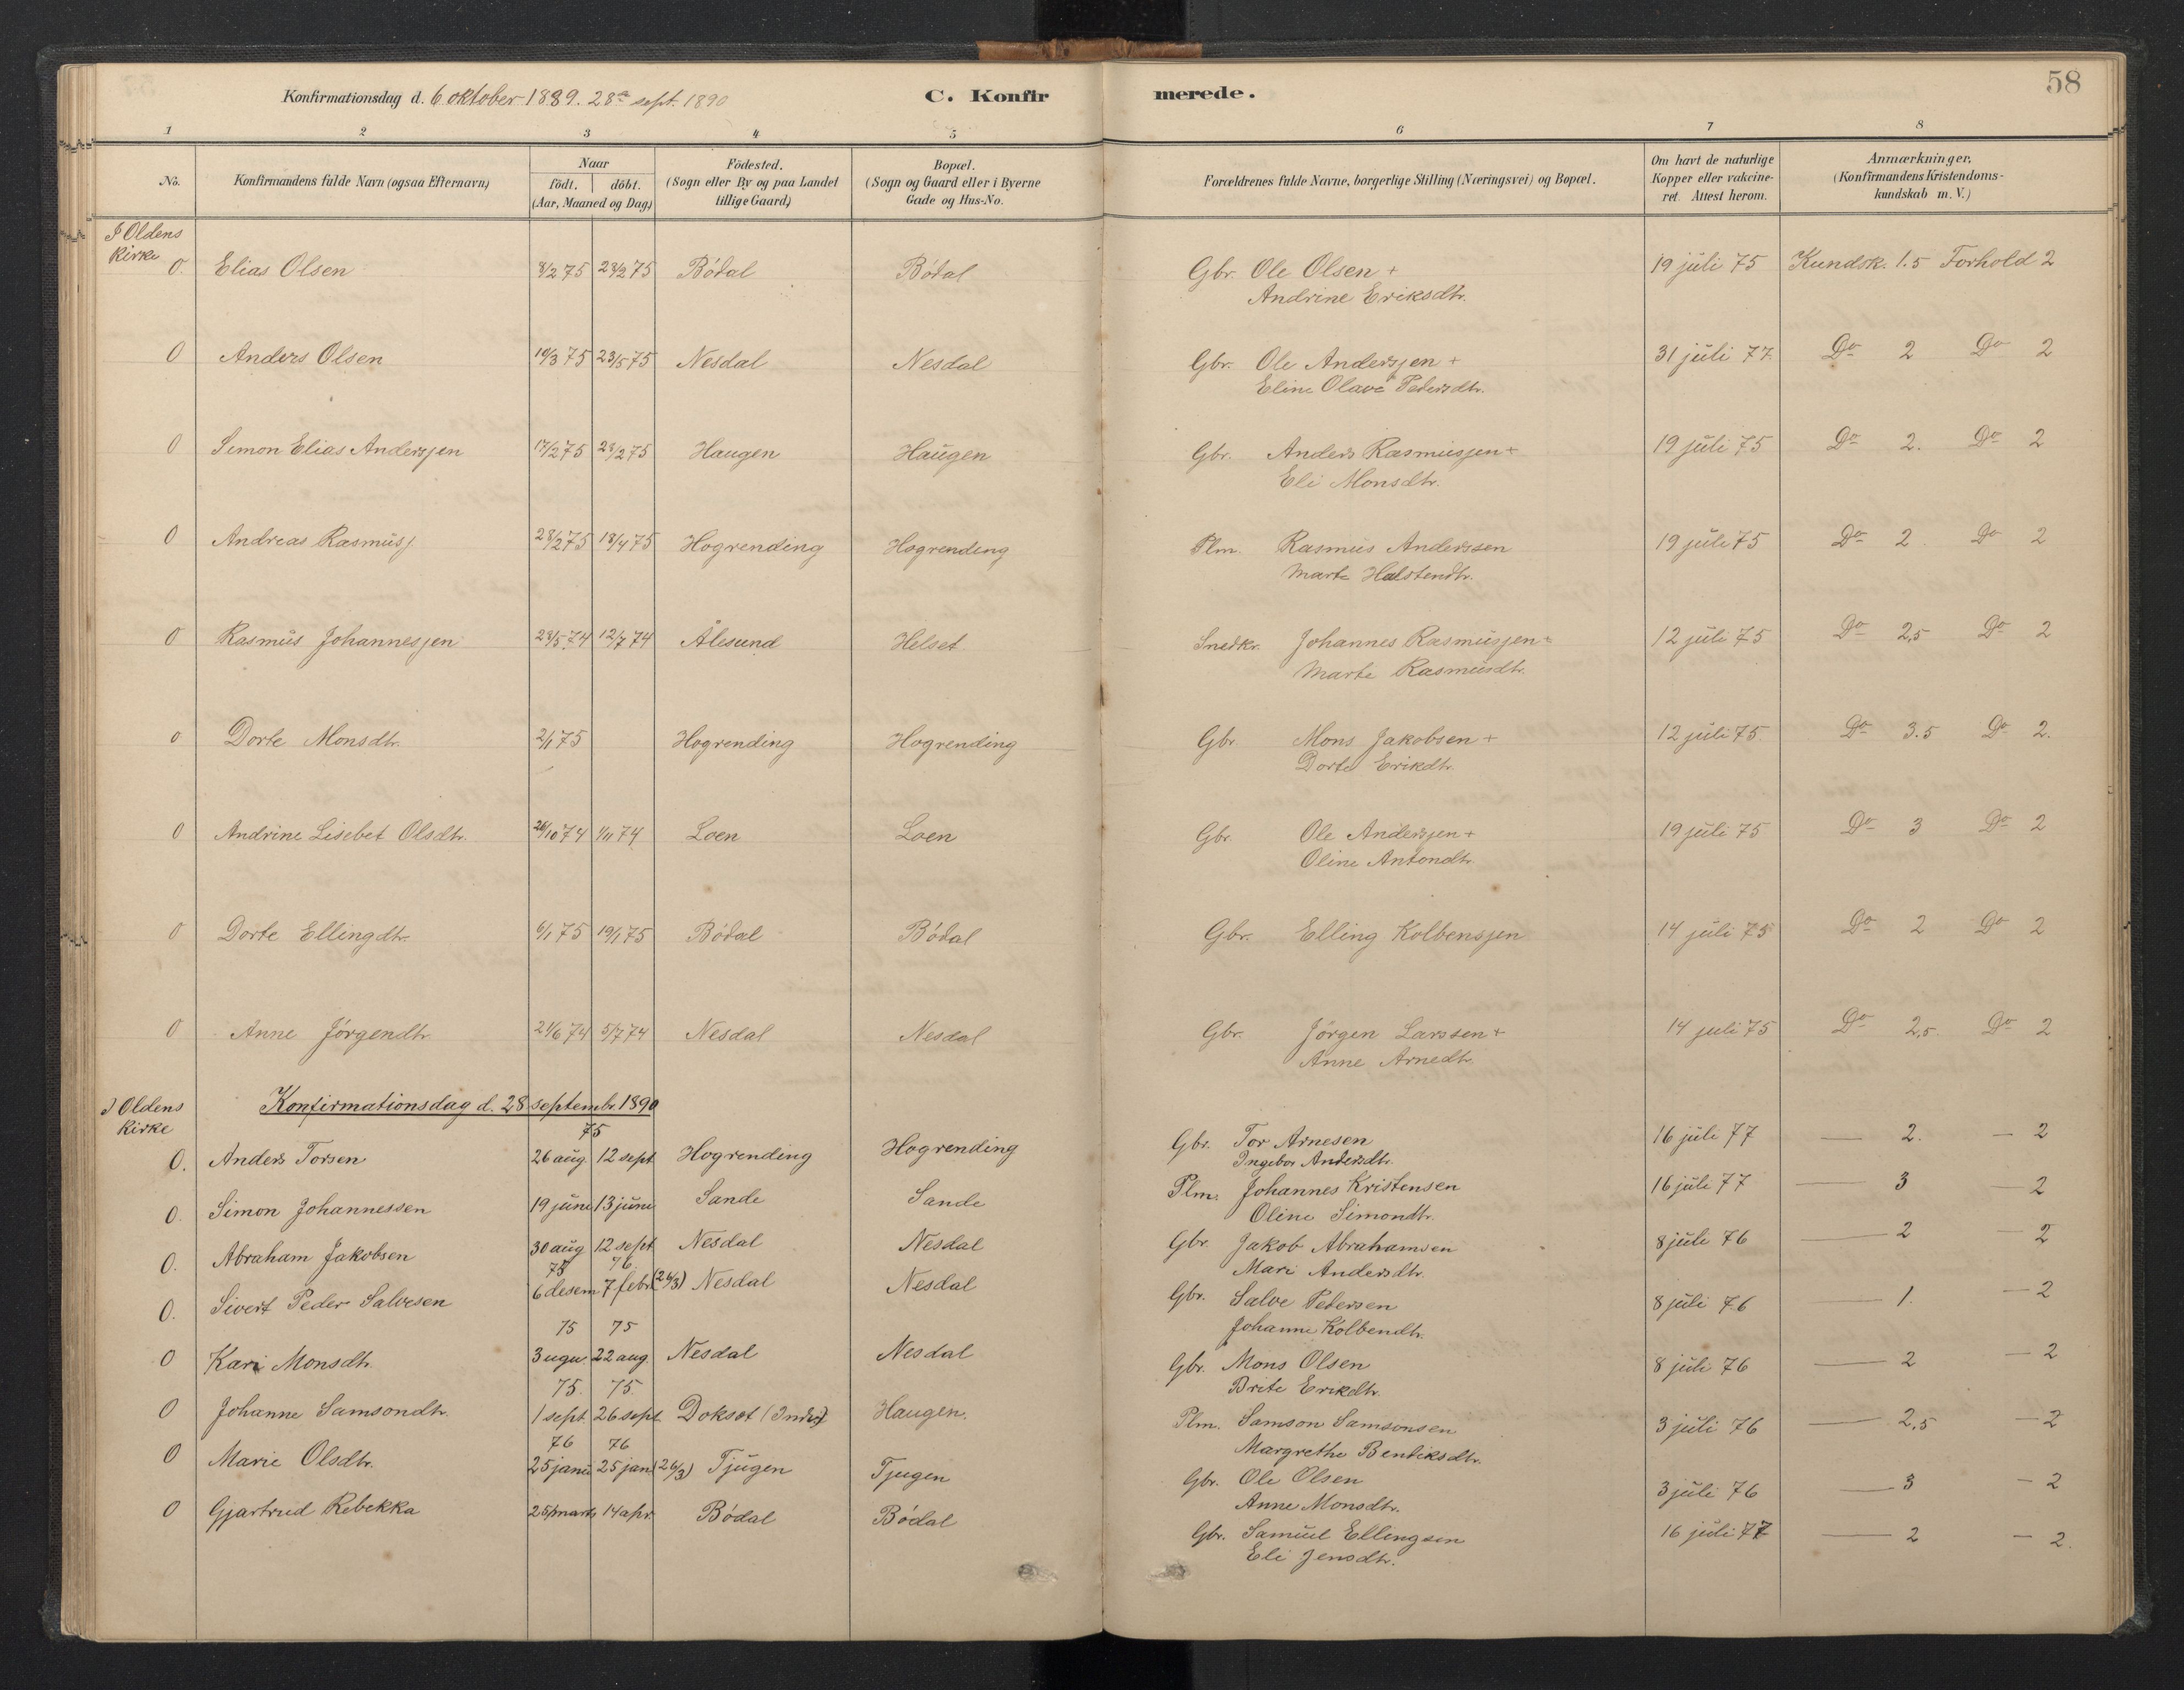 58
Konfirmationsdag d. 6 oktober 1889. 28de sept. 1890
C. Konfirmerede.
1 2 3 4 5 6 7 8
No.
Konfirmandens fulde Navn (ogsaa Efternavn)
Naar
födt. döbt.
(Aar, Maaned og Dag)
Födested.
(Sogn eller By og paa Landet
tillige Gaard)
Bopæl.
(Sogn og Gaard eller i Byerne
Gade og Hus-No.
Forældrenes fulde Navne, borgerlige Stilling (Næringsvei) og Bopæl.
Om havt de naturlige
Kopper eller vakcine-
ret. Attest herom.
Anmærkninger.
(Konfirmandens Kristendoms-
kundskab m. V.)
I Oldens
Kirke
0. Elias Olsen 8/2 75 28/2 75 Bödal Bödal Gbr. Ole Olsen + 19 juli 75 Kundsk. 1.5 Forhold 2
Andrine Eriksdtr.
0 Anders Olsen 19/3 75 23/5 75 Nesdal Nesdal Gbr. Ole Anderssen + 31 juli 77. Do 2 Do 2
Eline Olave Pedersdtr.
0 Simon Elias Anderssen 17/2 75 28/2 75 Haugen Haugen Gbr. Anders Rasmussen + 19 juli 75 Do 2. Do 2
Eli Monsdtr.
0 Andreas Rasmuss. 28/2 75 18/4 75 Hogrending Hogrending Plm. Rasmus Anderssen 19 juli 75 Do 2 Do 2
Marte Halstendtr.
0 Rasmus Johannessen 28/5 74 12/7 74 Ålesund Helset Snedkr. Johannes Rasmussen + 12 juli 75 Do 2,5 Do 2
Marte Rasmusdtr.
0 Dorte Monsdtr. 2/1 75 Hogrending Hogrending Gbr Mons Jakobsen + 12 juli 75. Do 3.5 Do 2.
Dorte Erikdtr.
0 Andrine Lisebet Olsdtr. 26/10 74 1/11 74 Loen Loen Gbr. Ole Anderssen + 19 juli 75 Do 3 Do 2
Oline Antondtr.
0 Dorte Ellingdtr. 6/1 75 19/1 75 Bödal Bödal Gbr. Elling Kolbenssen 14 juli 75 Do 2 Do 2
0 Anne Jörgendtr. 21/6 74 5/7 74 Nesdal Nesdal Gbr. Jörgen Larssen + 14 juli 75 Do 2,5. Do 2
Anne Arnedtr.
I Oldens
Kirke
Konfirmationsdag d. 28 septembr. 1890
75
0. Anders Torsen 26 aug. 12 sept Hogrending Hogrending Gbr. Tor Arnesen 16 juli 77 — 2. — 2
Ingebor Andersdtr.
0. Simon Johannessen 19 juni 13 juni Sande Sande Plm. Johannes Kristensen 16 juli 77 — 3 — 2
Oline Simondtr.
0. Abraham Jakobsen 30 aug 12 sept Nesdal Nesdal Gbr. Jakob Abrahamsen 8 juli 76 — 2 — 2
Mari Andersdtr.
75 76
0. Sivert Peder Salvesen 6 desem 7 febr. (26/3) Nesdal Nesdal Gbr. Salve Pedersen 8 juli 76 — 1. — 2
Johanne Kolbendtr.
75 75
0 Kari Monsdtr. 3 22 aug. Nesdal Nesdal Gbr. Mons Olsen 8 juli 76 — 2 — 2
Brite Erikdtr.
75. 75.
0 Johanne Samsondtr. 1 sept. 26 sept Doksæt Haugen. Plm. Samson Samsonsen 3 juli 76 — 2,5 — 2
Margrethe Bentiksdtr.
76 76
0 Marie Olsdtr. 25 janu 25 jan (26/3) Tjugen Tjugen Gbr. Ole Olsen 3 juli 76 — 3 — 2
Anne Monsdtr.
0 Gjartrud Rebekka 25 marts 14 apr Bödal Bödal Gbr. Samuel Ellingsen 16 juli 77 — 2 — 2.
Eli Jensdtr.